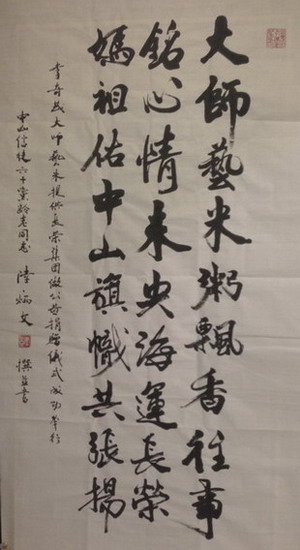 大師藝米粥飄香往事
銘心情未央海運長榮
媽祖佑中山旗幟共張揚
李奇茂大師藝米提供長榮集團做公益捐贈儀式成功舉行
中山信徒六十黨齡老同志 陸炳文 撰並書